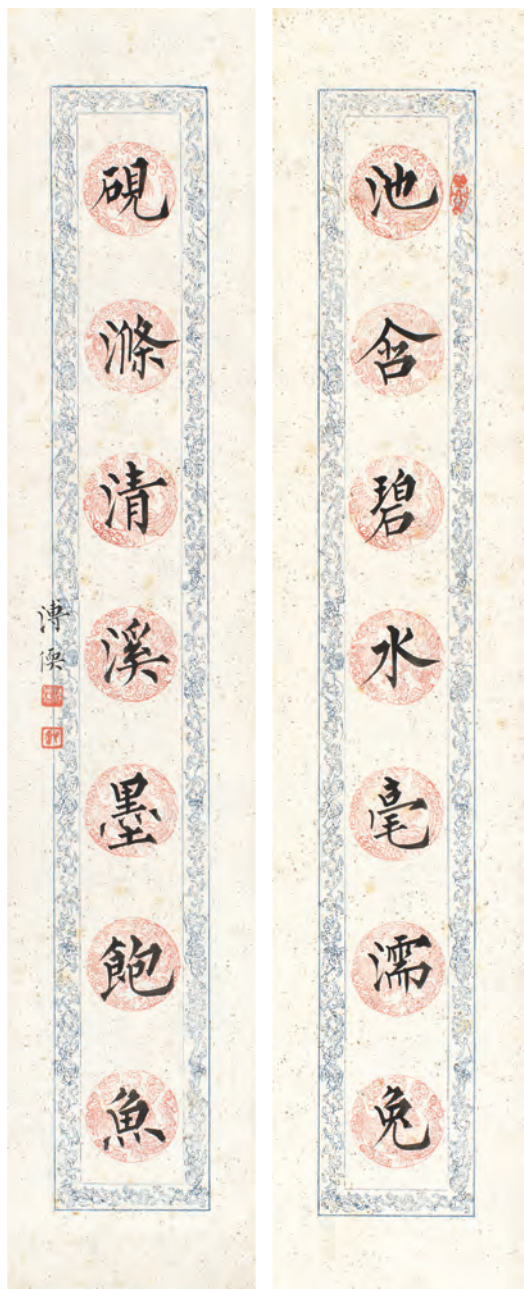 池含碧水毫濡兔
硯滌清溪墨飽魚
溥儒